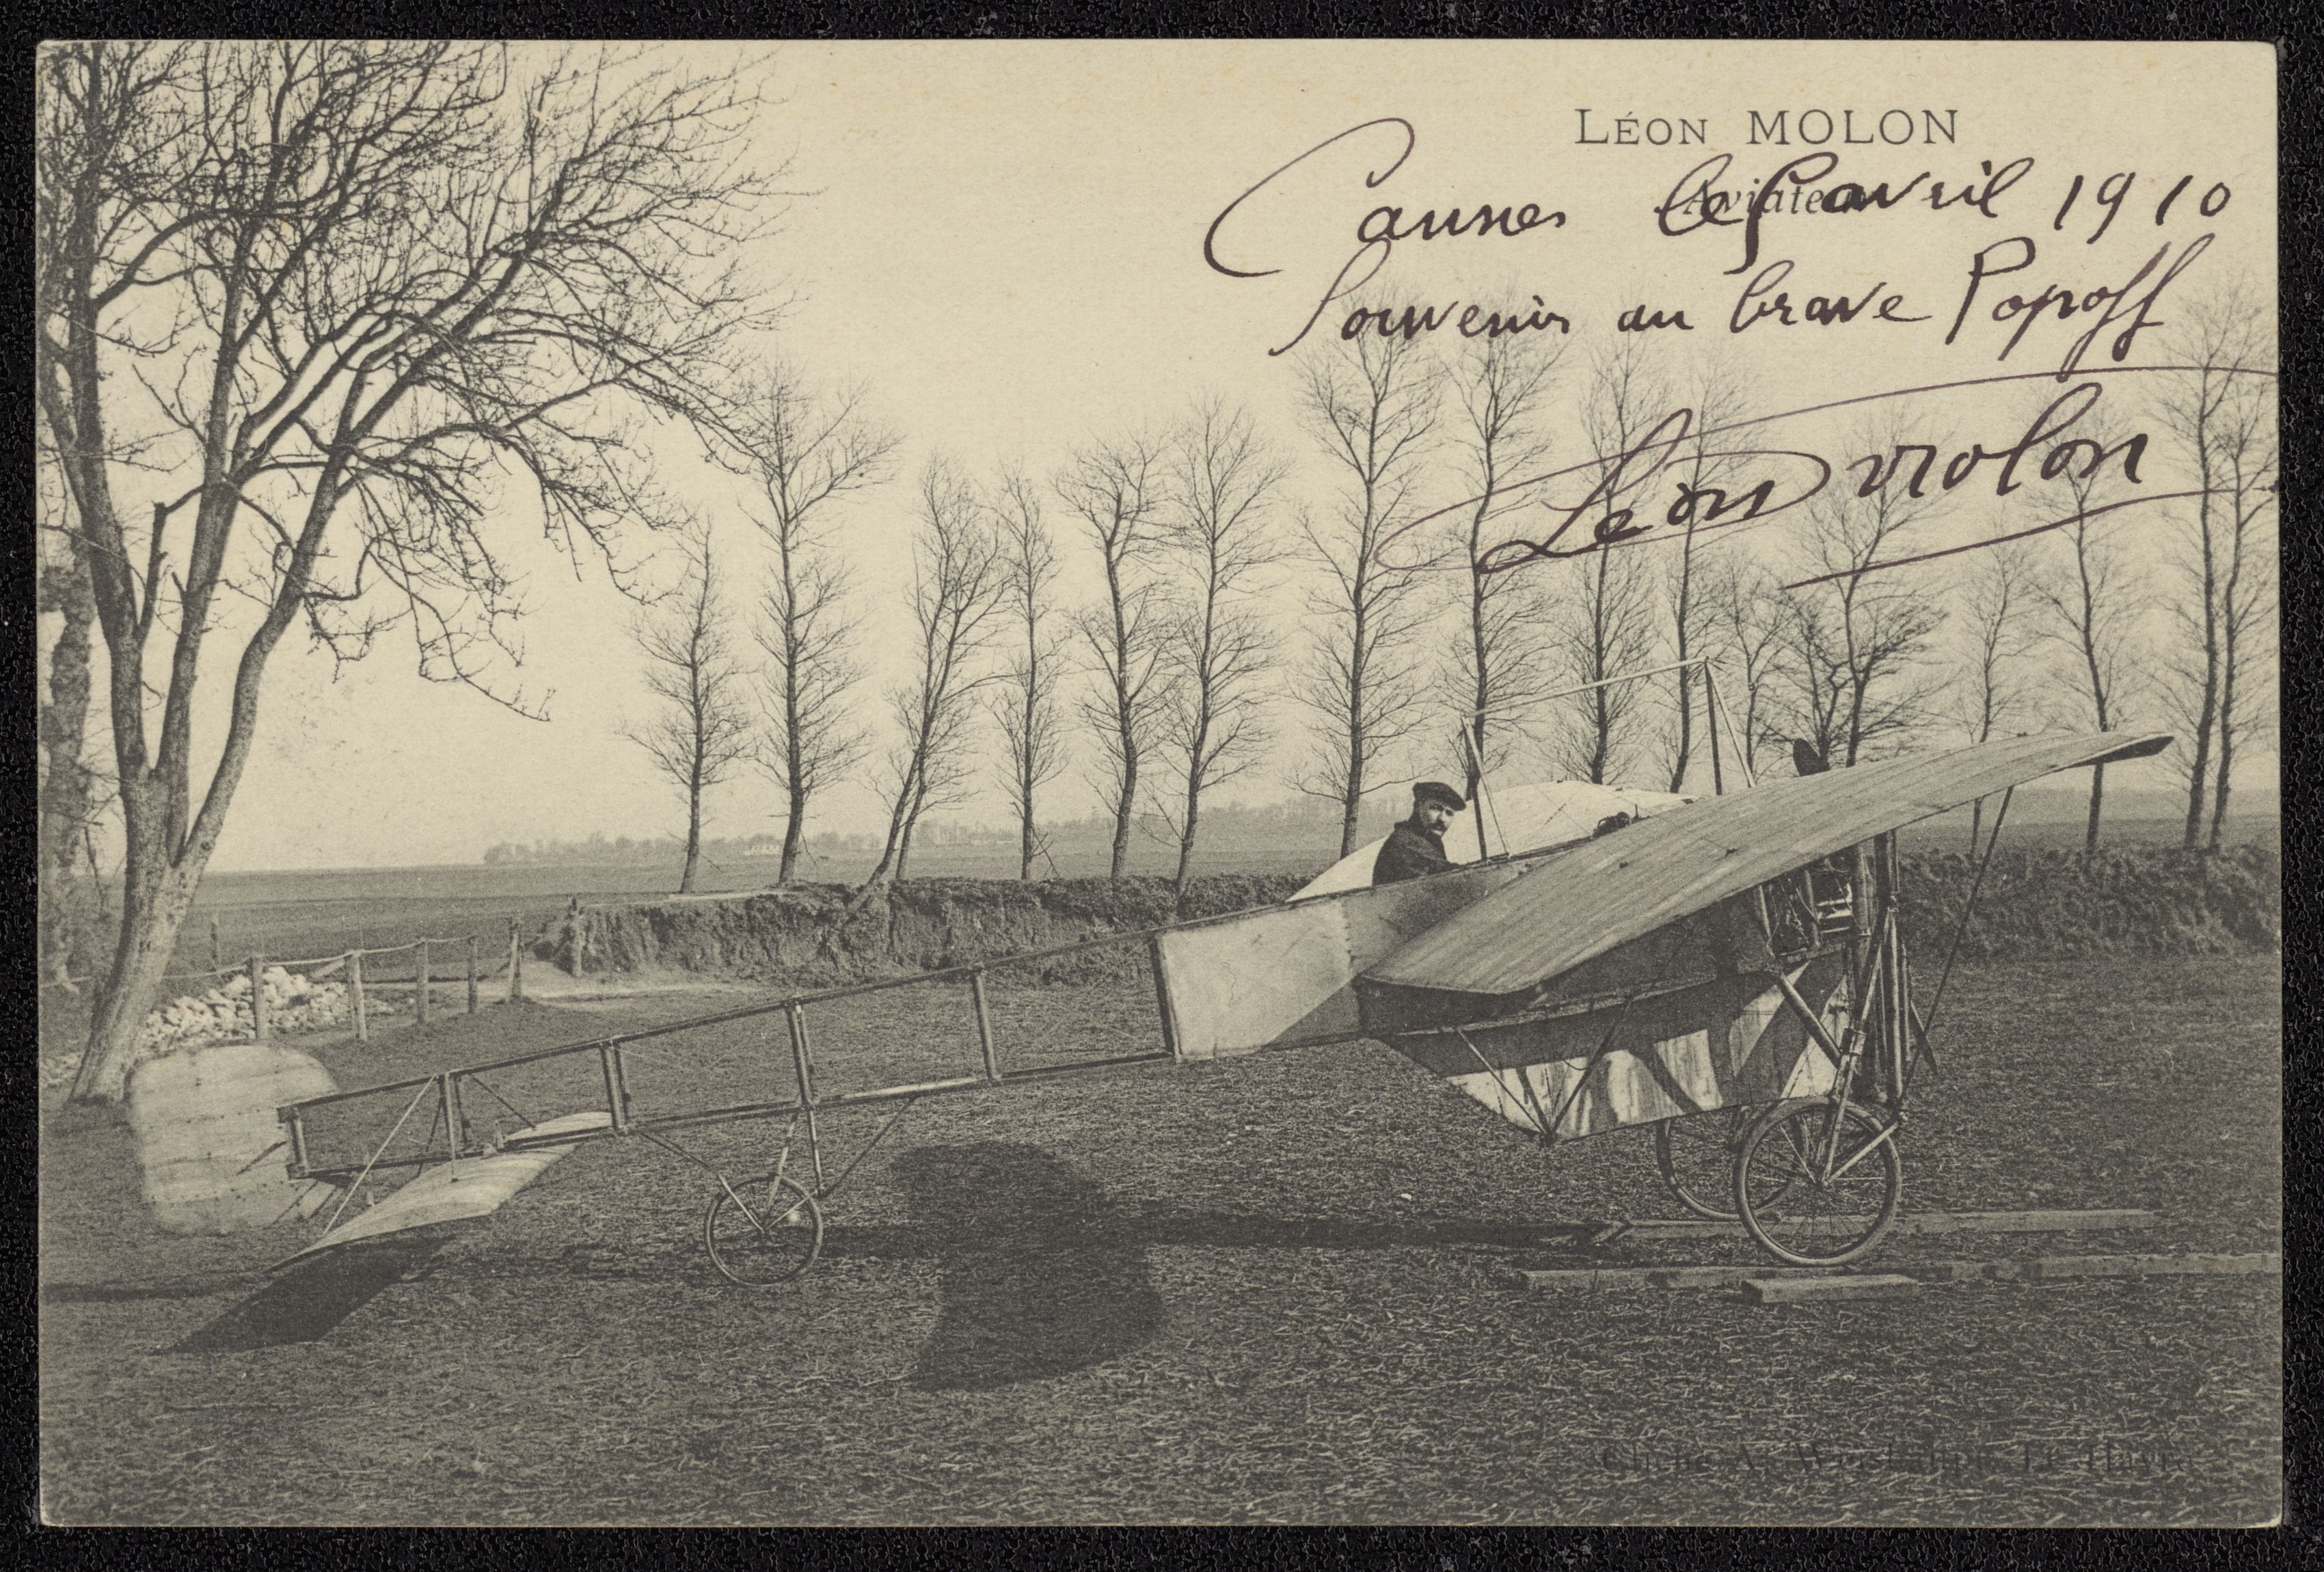 LÉON MOLON
Aviateur
Cannes le 5 avril 1910
Souvenir au brave Popoff
Léon Molon
Cliché A. Le Havre